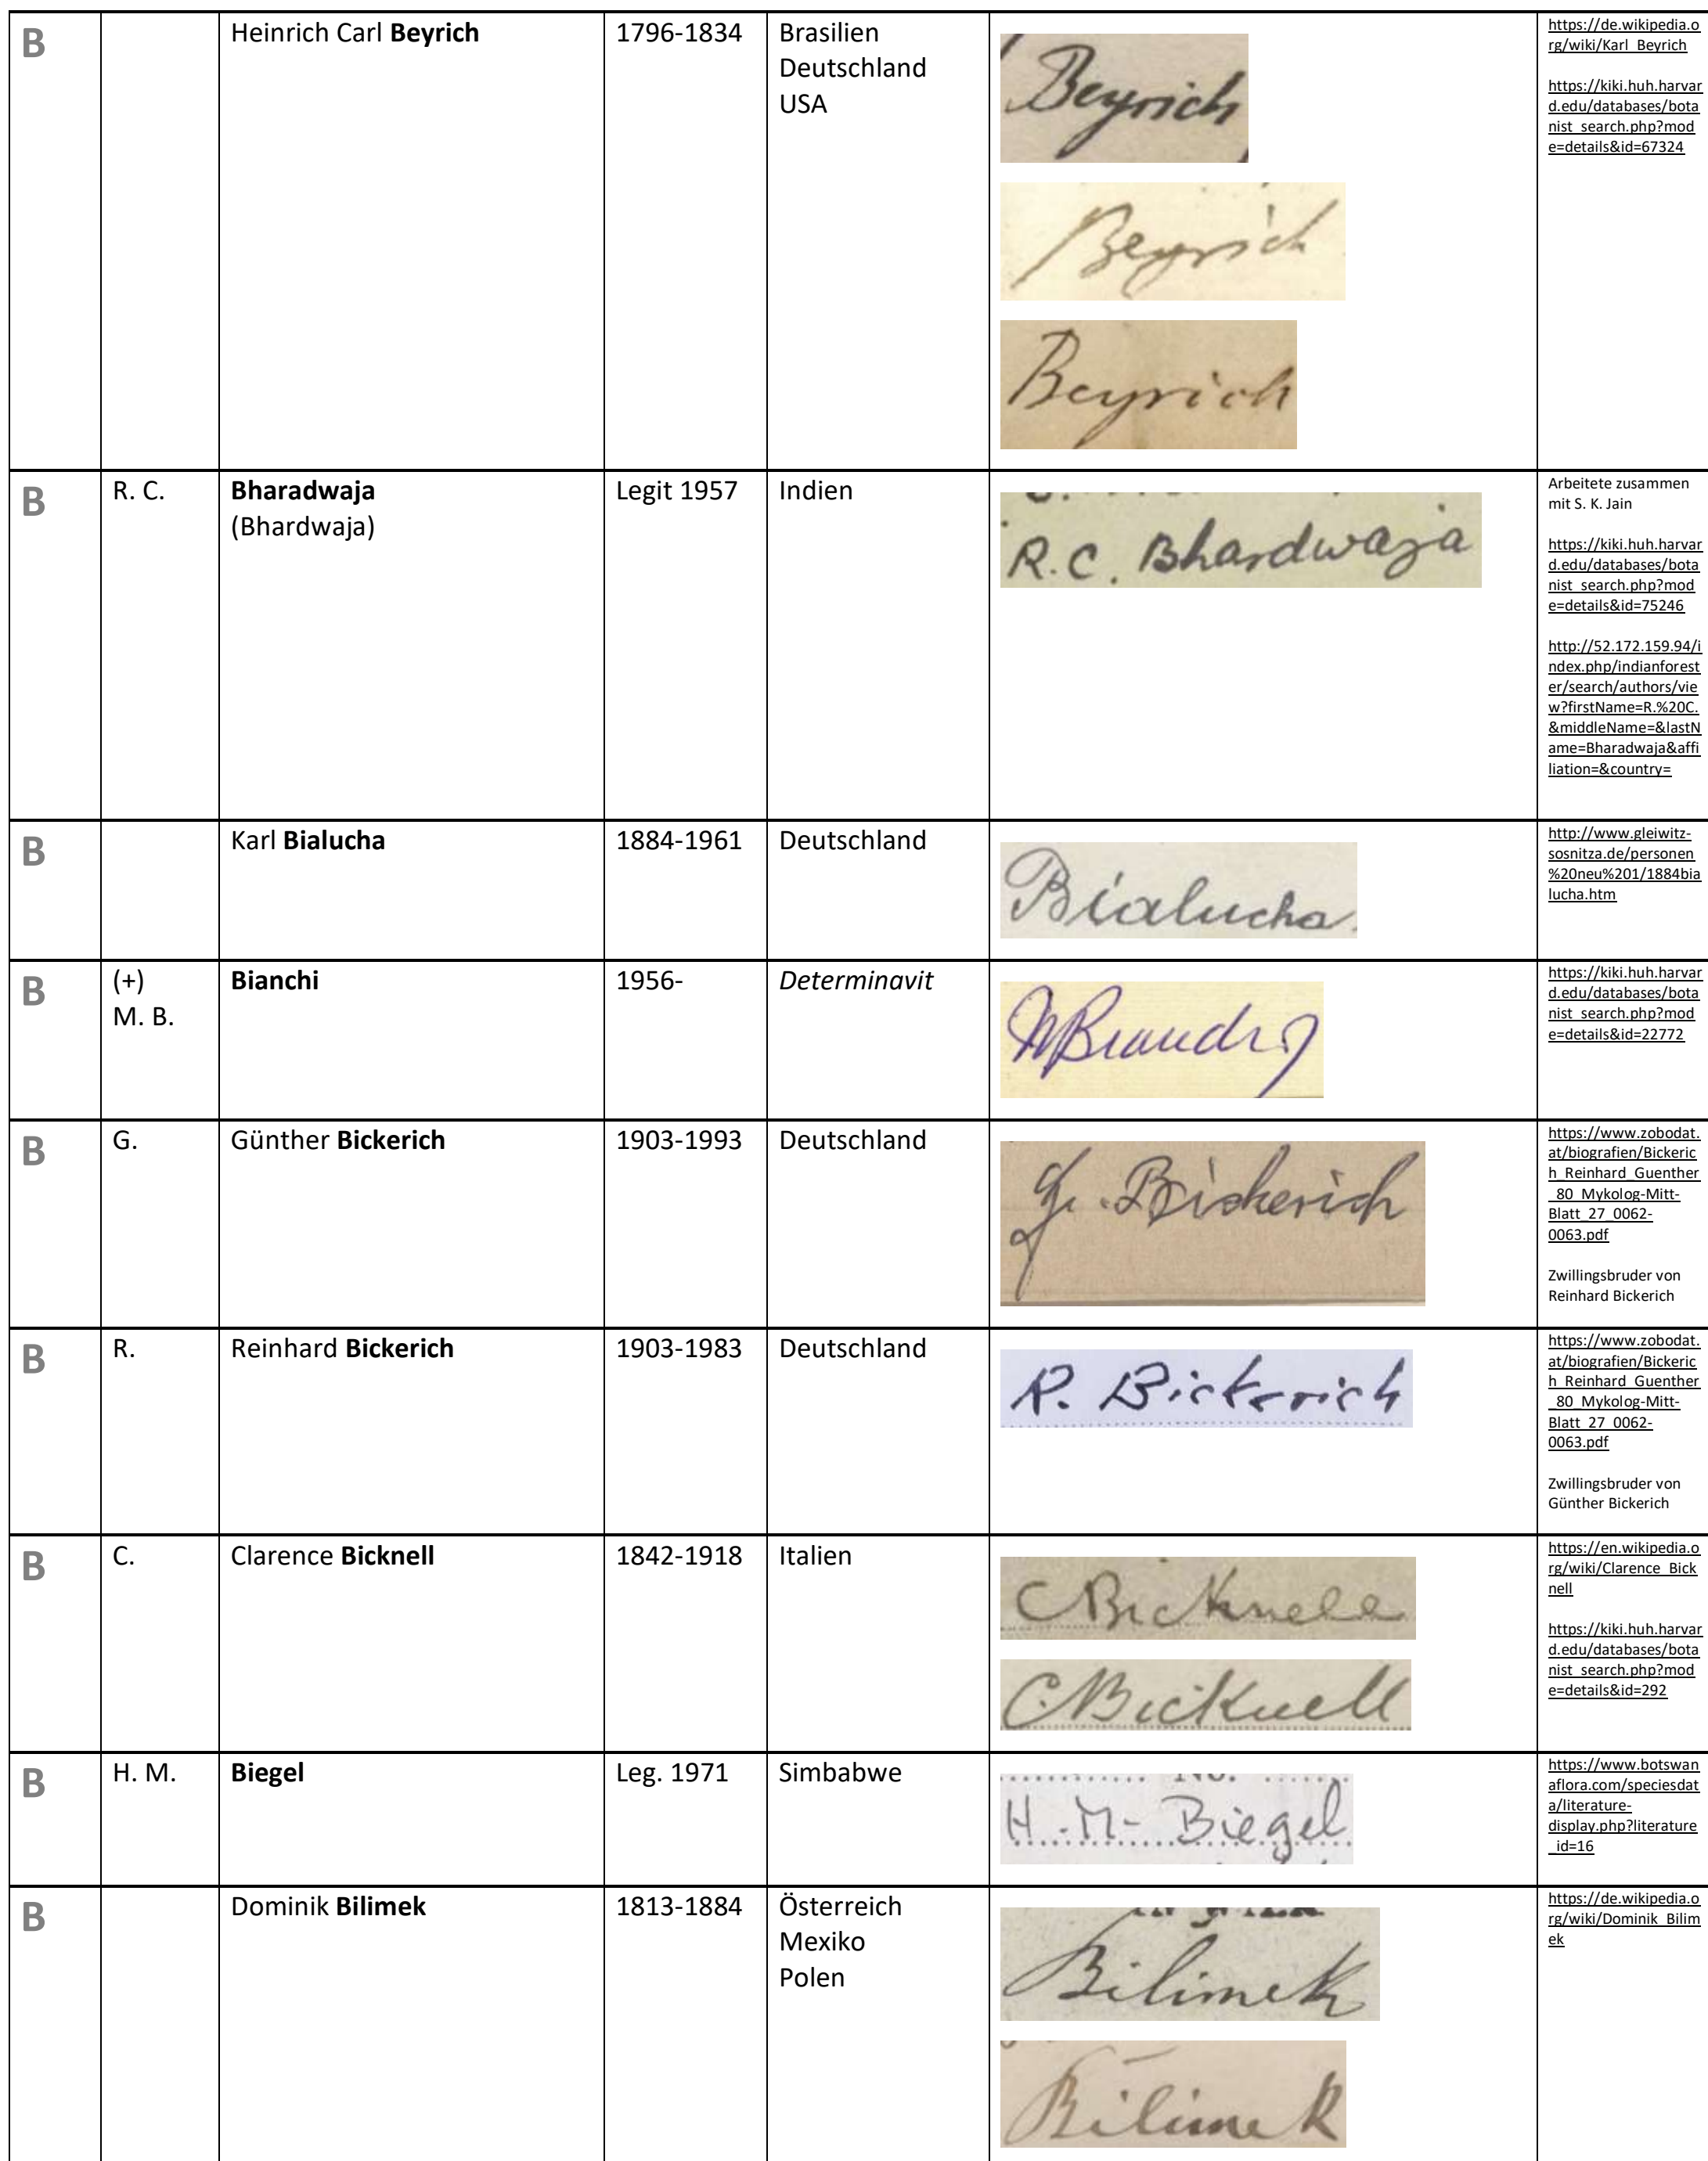 B
Heinrich Carl Beyrich
1796-1834
Brasilien
Deutschland
USA
Beyrich
Beyrich
Beyrich
https://de.wikipedia.o
rg/wiki/Karl_Beyrich
https://kiki.huh.harvar
d.edu/databases/bota
nist_search.php?mod
e=details&id=67324
B
R. C.
Bharadwaja
(Bhardwaja)
Legit 1957
Indien
R. C. Bhardwaja
Arbeitete zusammen
mit S. K. Jain
https://kiki.huh.harvar
d.edu/databases/bota
nist_search.php?mod
e=details&id=75246
http://52.172.159.94/i
ndex.php/indianforest
er/search/authors/vie
w?firstName=R.%20C.
&middleName=&lastN
ame=Bharadwaja&affi
liation=&country=
B
Karl Bialucha
1884-1961
Deutschland
Bialucha
http://www.gleiwitz-
sosnitza.de/personen
%20neu%201/1884bia
lucha.htm
B
(+)
M. B.
Bianchi
1956-
Determinavit
MBianchi
https://kiki.huh.harvar
d.edu/databases/bota
nist_search.php?mod
e=details&id=22772
B
G.
Günther Bickerich
1903-1993
Deutschland
G. Bickerich
https://www.zobodat.
at/biografien/Bickeric
h_Reinhard_Guenther
_80_Mykolog-Mitt-
Blatt_27_0062-
0063.pdf
Zwillingsbruder von
Reinhard Bickerich
B
R.
Reinhard Bickerich
1903-1983
Deutschland
R. Bickerich
https://www.zobodat.
at/biografien/Bickeric
h_Reinhard_Guenther
_80_Mykolog-Mitt-
Blatt_27_0062-
0063.pdf
Zwillingsbruder von
Günther Bickerich
B
C.
Clarence Bicknell
1842-1918
Italien
C Bicknell
C. Bicknell
https://en.wikipedia.o
rg/wiki/Clarence_Bick
nell
https://kiki.huh.harvar
d.edu/databases/bota
nist_search.php?mod
e=details&id=292
B
H. M.
Biegel
Leg. 1971
Simbabwe
No.
H.M. Biegel
https://www.botswan
aflora.com/speciesdat
a/literature-
display.php?literature
_id=16
B
Dominik Bilimek
1813-1884
Österreich
Mexiko
Polen
Bilimek
Bilimek
https://de.wikipedia.o
rg/wiki/Dominik_Bilim
ek